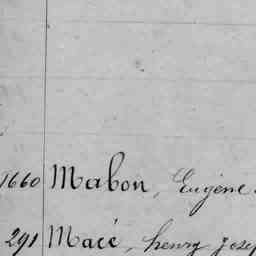 1660 Mabon, Eugène
291 Macé, henry Josep